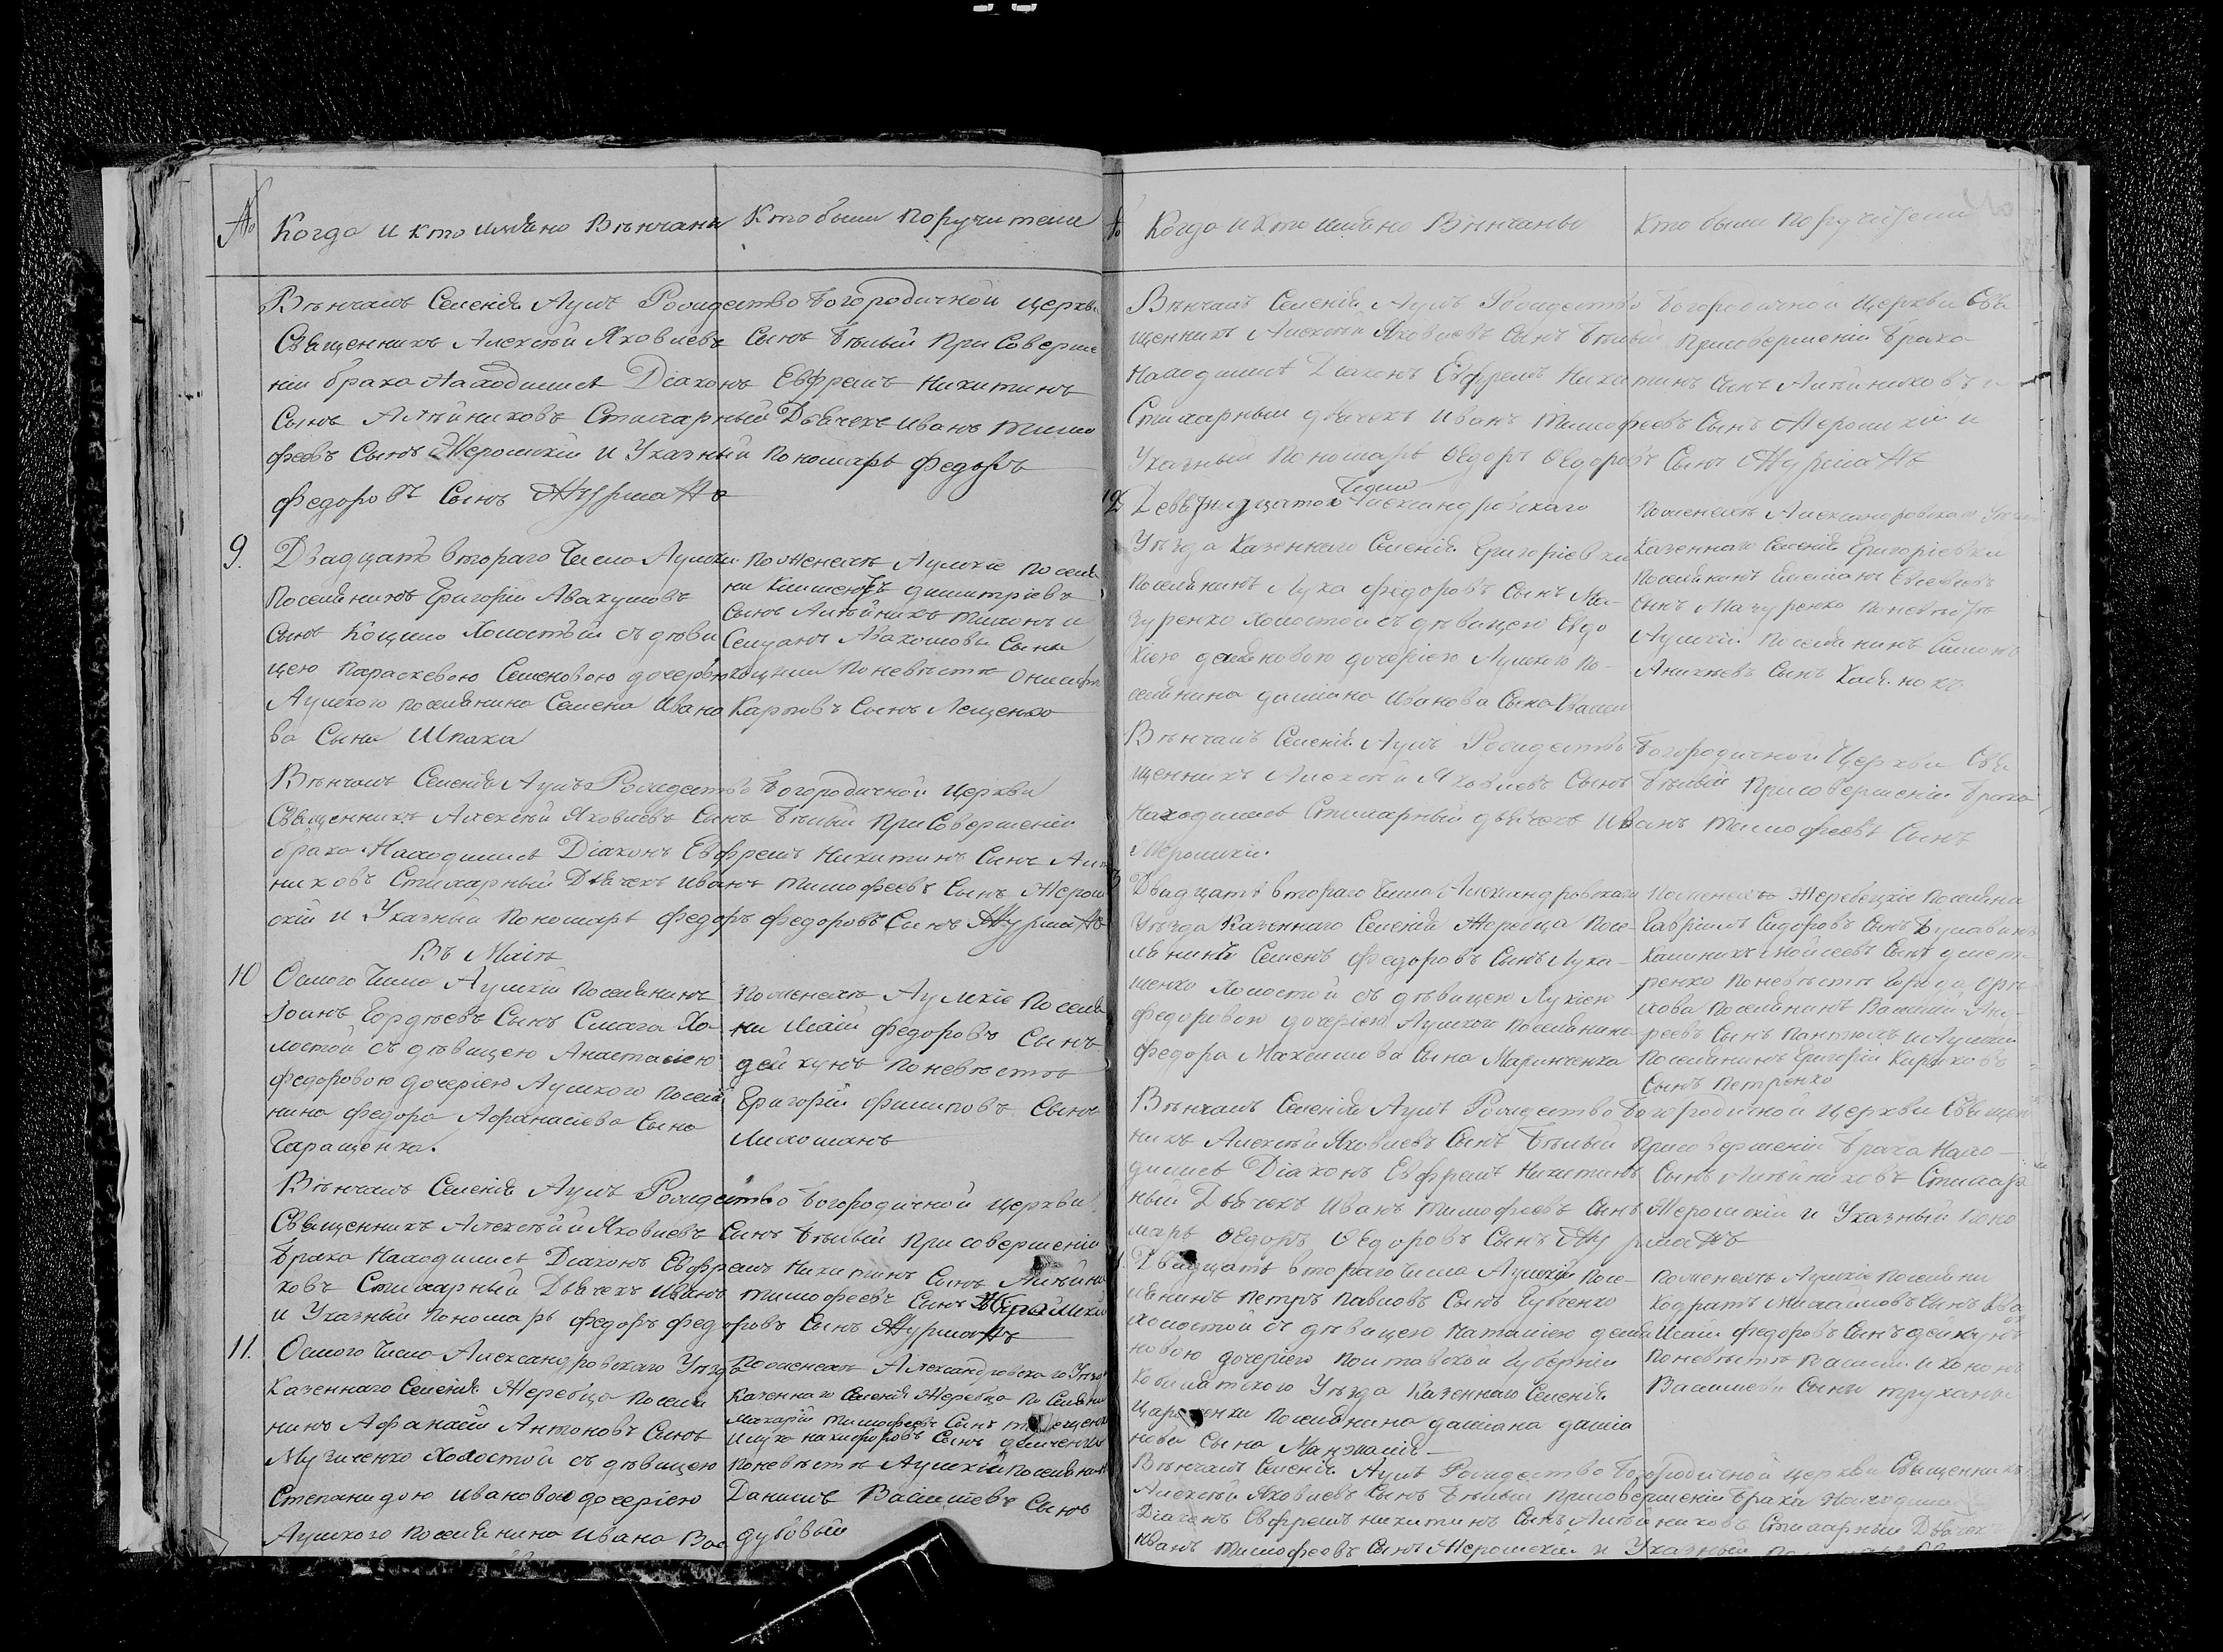 № Когда и кто имѣяно Вѣнчаны
Кто были поручители
Вѣнчалъ Селенія Аулъ Рождество Богородичной церкви
Священникъ Алексѣй Яковлевъ Сынъ Бѣлый При Соверше
ніи брака Находились Діаконъ Евфремъ Никитинъ
Сынъ Алѣйниковъ Стихарный Дьячекъ Иванъ Тимо
феевъ Сынъ Жеромскій и Указный Пономарь Федоръ
Федоровъ Сынъ
9. Двадцать втораго Числа Аулскій
Поселянинъ Григорій Авакумовъ
Сынъ Коцило Холостый съ дѣви
цею Параскевою Семеновою дочерью
Аулского поселянина Семена Ивано
ва Сына Шпака
По Женихѣ Аулскіе Поселя
не Климентъ Димитріевъ
Сынъ Алѣйникъ Тихонъ и
Авакумовы Сыны
Коцили По невѣстѣ Онисимъ
Карповъ Сынъ Лещенко
Вѣнчалъ Селенія Аулъ Рождество Богородичной Церкви
Священникъ Алексѣй Яковлевъ Сынъ Бѣлый При Совершеніи
брака Находились Діаконъ Евфремъ Никитинъ Сынъ Алѣй
никовъ Стихарный Дьячекъ Иванъ Тимофеевъ Сынъ Жером
скій и Указный Пономарь Федоръ Федоровъ Сынъ
Въ Маіѣ
10 Осмого Числа Аулскій Поселянинъ
Іоанъ Гордѣевъ Сынъ Смага Хо-
лостой съ дѣвицею Анастасіею
Федоровою дочеріею Аулского Поселя
нина Федора Афанасіева Сына
Гаращенка.
По женихѣ Аулскіе Поселя
не Исаій Федоровъ Сынъ
Дейкунъ По невѣстѣ
Григорій Филиповъ Сынъ
Вѣнчалъ Селенія Аулъ Рождество Богородичной Церкви
Священникъ Алексѣй Яковлевъ Сынъ Бѣлый При совершеніи
Брака Находились Діаконъ Евфремъ Никитинъ Сынъ Алѣйни
ковъ Стихарный Дьячекъ Иванъ Тимофеевъ Сынъ
и Указный Пономарь Федоръ Федоровъ Сынъ
11. Осмого Числа Александровскаго Уѣзда
Казеннаго Селенія Жеребца Поселя
нинъ Афанасій Антоновъ Сынъ
Холостой съ дѣвицею
Степанидою Ивановою дочеріею
Аулского Поселянина Ивана Вас
По женихѣ Александровского Уѣзда
Казеннаго Селенія Жеребца Поселяне
Макарій Тимофеевъ Сынъ
Никифоровъ Сынъ Демченко
По невѣстѣ Аулскій Поселянинъ
Данилъ Василіевъ Сынъ
Дубовый
№ Когда и кто имѣяно Вѣнчаны
Кто были Поручители
Вѣнчалъ Селенія Аулъ Рождество Богородичной Церкви Свя
щенникъ Алексѣй Яковлевъ Сынъ Бѣлый При совершеніи Брака
Находились Діаконъ Евфремъ Никитинъ Сынъ Алѣйниковъ и
Стихарный дьячекъ Иванъ Тимофеевъ Сынъ Жеромскій и
Указный Пономарь Ѳедоръ Ѳедоровъ Сынъ
12 Александровскаго
Уѣзда Казеннаго Селенія Григоріевки
Поселянинъ Лука Федоровъ Сынъ Ма-
зуренко Холостой съ дѣвицею Евдо
кіею Даміановою дочеріею Аулского По-
селянина Даміана Иванова Сына
По женихѣ Александровскаго
Казеннаго Селенія Григоріевки
Поселянинъ
Сынъ Мазуренко По невѣстѣ
Аулскій Поселянинъ
Сынъ
Вѣнчалъ Селенія Аулъ Рождество Богородичной Церкви Свя
щенникъ Алексѣй Яковлевъ Сынъ Бѣлый При совершеніи Брака
Находились Стихарный дьячекъ Иванъ Тимофеевъ Сынъ
Жеромскій.
Двадцать втораго Числа Александровскаго
Уѣзда Казеннаго Селенія Жеребца Посе-
лянинъ Семенъ Федоровъ Сынъ Лука-
шенко Холостой съ дѣвицею Лукіею
Федоровою дочеріею Аулского Поселянина
Федора Максимова Сына Маринченка
По женихѣ Жеребецкіе Поселяне
Гавріилъ Сидоровъ Сынъ
Калиникъ Моисеевъ Сынъ
ренко По невѣстѣ Города Орѣ
хова Поселянинъ Василій Ан-
реевъ Сынъ и Аулскій
Поселянинъ Григорій
Сынъ Петренко
Вѣнчалъ Селенія Аулъ Рождество Богородичной Церкви Священ
никъ Алексѣй Яковлевъ Сынъ Бѣлый При совершеніи Брака Нахо-
дились Діаконъ Евфремъ Никитинъ Сынъ Алѣйниковъ Стихар
ный Дьячекъ Иванъ Тимофеевъ Сынъ Жеромскій и Указный Поно
марь Ѳедоръ Ѳедоровъ Сынъ
Двадцать втораго Числа Аулскій Посе-
лянинъ Петръ Павловъ Сынъ Губченко
Холостой съ дѣвицею Наталіею Деміа
новою дочеріею Полтавской Губерніи
Кобылятского Уѣзда Казеннаго Селенія
Цариченки Поселянина Даміана Даміа
нова Сына Манжалія
По женихѣ Аулскіе Поселяне
Кодратъ Михайловъ Сынъ
Исаій Федоровъ Сынъ Дейкунъ
По невѣстѣ
Василіевы Сыны Труханы
Вѣнчалъ Селенія Аулъ Рождество Богородичной Церкви Священникъ
Алексѣй Яковлевъ Сынъ Бѣлый При совершеніи Брака Находились
Діаконъ Евфремъ Никитинъ Сынъ Алѣйниковъ Стихарный Дьячекъ
Иванъ Тимофеевъ Сынъ Жеромскій и Указный